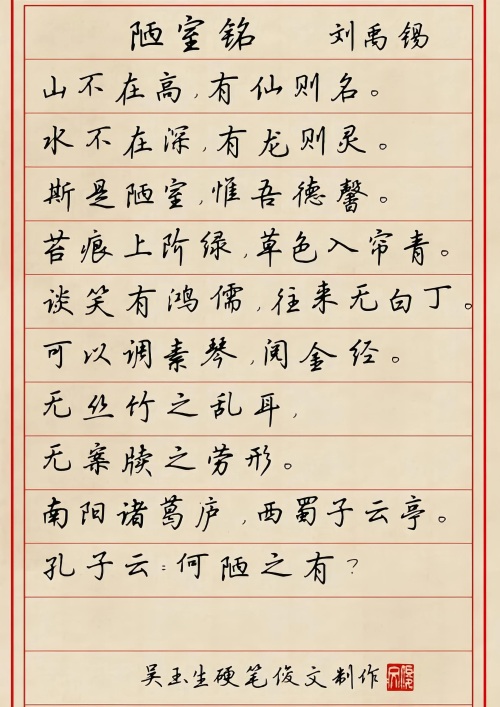 陋室铭 刘禹锡
山不在高,有仙则名。
水不在深,有龙则灵。
斯是陋室,惟吾德馨。
苔痕上阶绿,草色入帘青。
谈笑有鸿儒,往来无白丁。
可以调素琴,阅金经。
无丝竹之乱耳,
无案牍之劳形。
南阳诸葛庐,西蜀子云亭。
孔子云:何陋之有?
吴玉生硬笔俊文制作